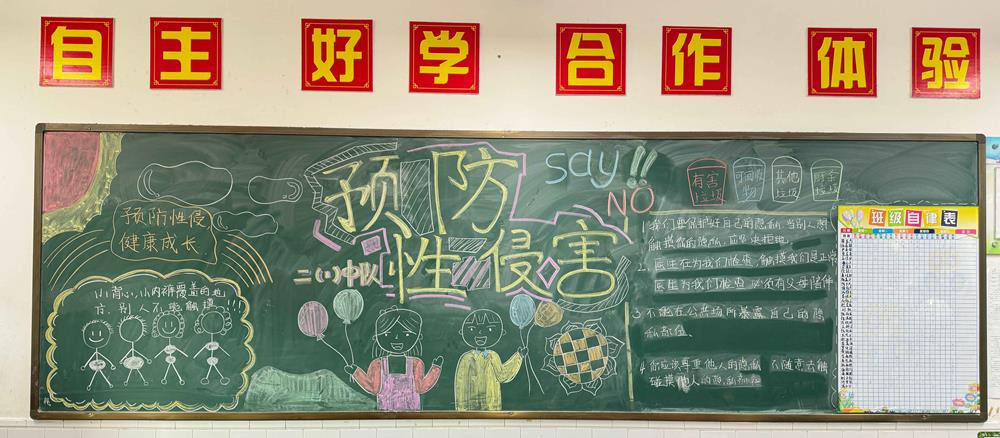 自主好学合作体验
预防性侵
健康成长
小背心,小内裤覆盖的地
方,别人不能触摸!!!
预防
性侵害
二(1)中队
say!!
NO
有害
垃圾
可回收
物
其他
垃圾
厨余
垃圾
1.我们要保护好自己的隐私,当别人想
触摸你的隐私,应坚决拒绝.
2.医生在为我们检查,触摸我们是正常
医生为我们检查必须有父母陪伴
3.不能在公共场所暴露自己的隐
私部位.
4.你应该尊重他人的隐私 不随意去触
碰摸他人的隐私部位
班级自律表